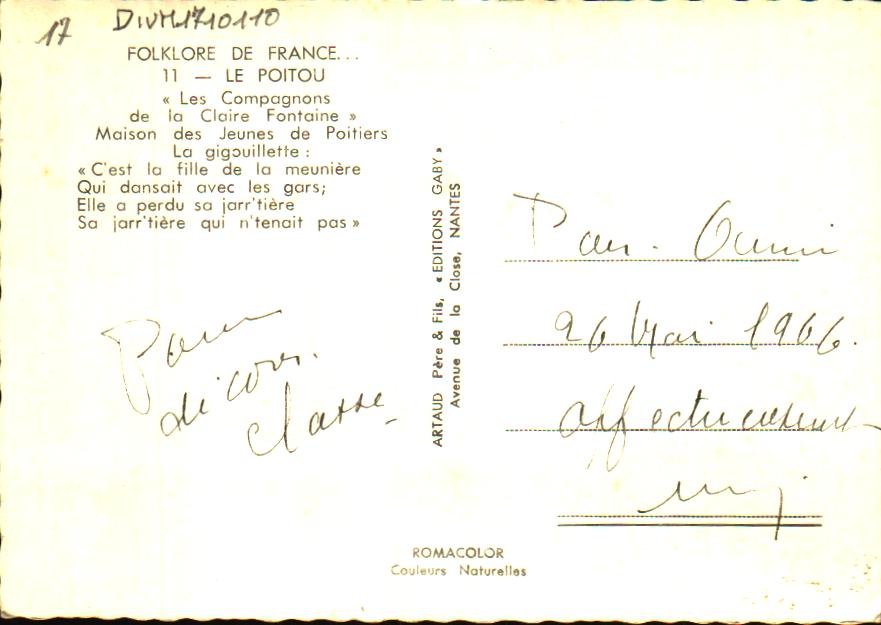 17 DIVM1710110
FOLKLORE DE FRANCE...
11 — LE POITOU
« Les Compagnons
de la Claire Fontaine »
Maison des Jeunes de Poitiers
La gigouillette :
« C'est la fille de la meunière
Qui dansait avec les gars;
Elle a perdu sa jarr'tière
Sa jarr'tière qui n'tenait pas »
Pour
décor.
classe
ARTAUD Père & Fils, « EDITIONS GABY »
Avenue de la Close, NANTES
26 Mai 1966.
affectueusement
ROMACOLOR
Couleurs Naturelles